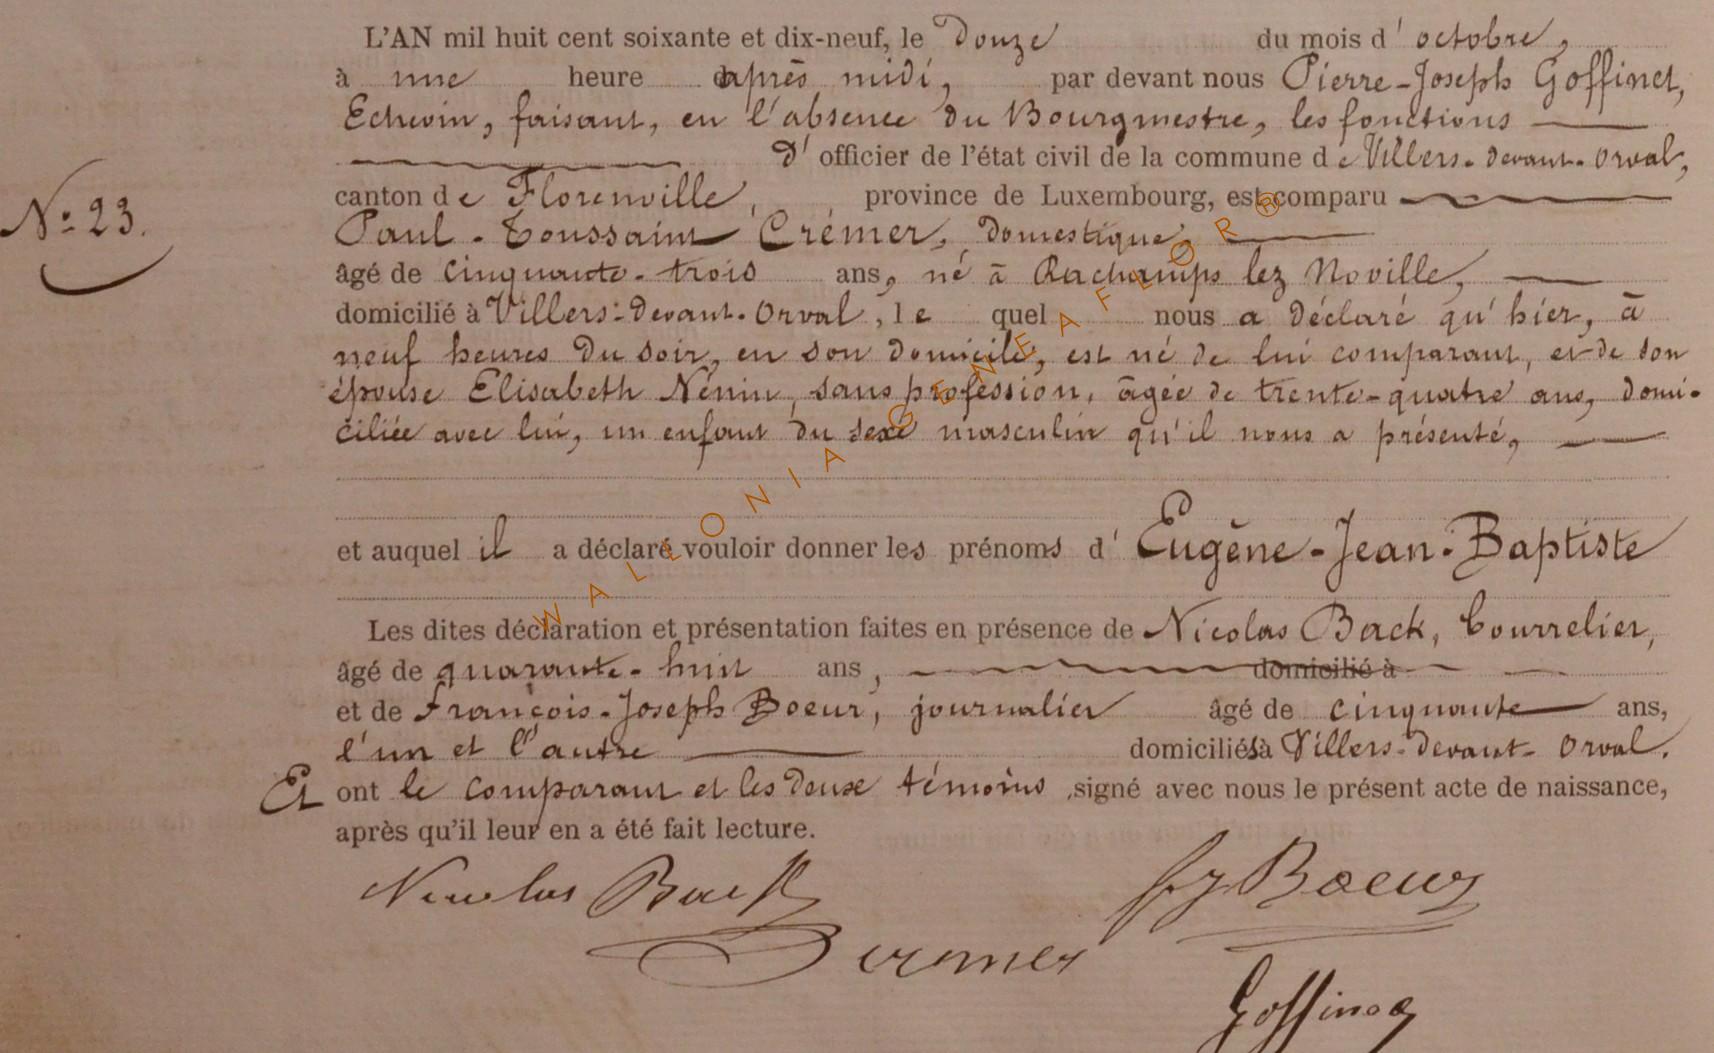 L'AN mil huit cent soixante et dix-neuf, le Douze du mois d'octobre,
à une heure d'après midi, par devant nous Pierre-Joseph Goffinet,
Echevin, faisant, en l'absence du Bourgmestre, les fonctions
d'officier de l'état civil de la commune de Villers-devant-Orval,
N° 23.
canton de Florenville, province de Luxembourg, est comparu
Paul-Toussaint Crémer, domestique,
âgé de cinquante-trois ans, né à Rachamps lez Noville,
domicilié à Villers-devant-Orval, lequel nous a déclaré qu'hier, à
neuf heures du soir, en son domicile, est né de lui comparant, et de son
épouse Elisabeth Nénin, sans profession, âgée de trente-quatre ans, domi-
ciliée avec lui, un enfant du sexe masculin qu'il nous a présenté,
et auquel il a déclaré vouloir donner les prénoms d'Eugène-Jean-Baptiste
Les dites déclaration et présentation faites en présence de Nicolas Back, bourrelier,
âgé de quarante-huit ans, domicilié à
et de François-Joseph Boeur, journalier âgé de cinquante ans,
l'un et l'autre domiciliés à Villers-devant-Orval.
Et ont le comparant et les deux témoins signé avec nous le présent acte de naissance,
après qu'il leur en a été fait lecture.
Nicolas Back fj Boeur
Cremer
Goffinet
WALLONIA GENEAFLOR R ®